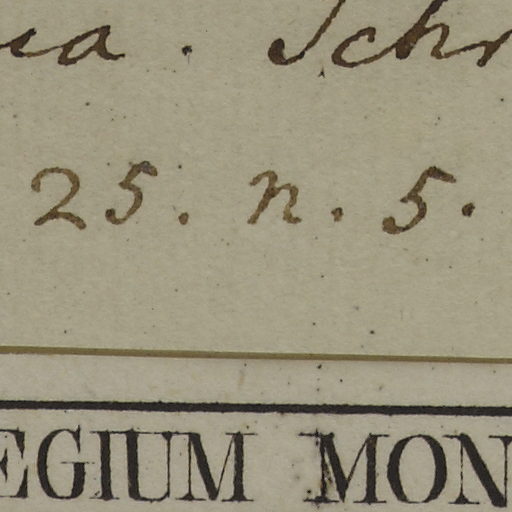 ua. Schr
25. n. 5.
EGIUM MON